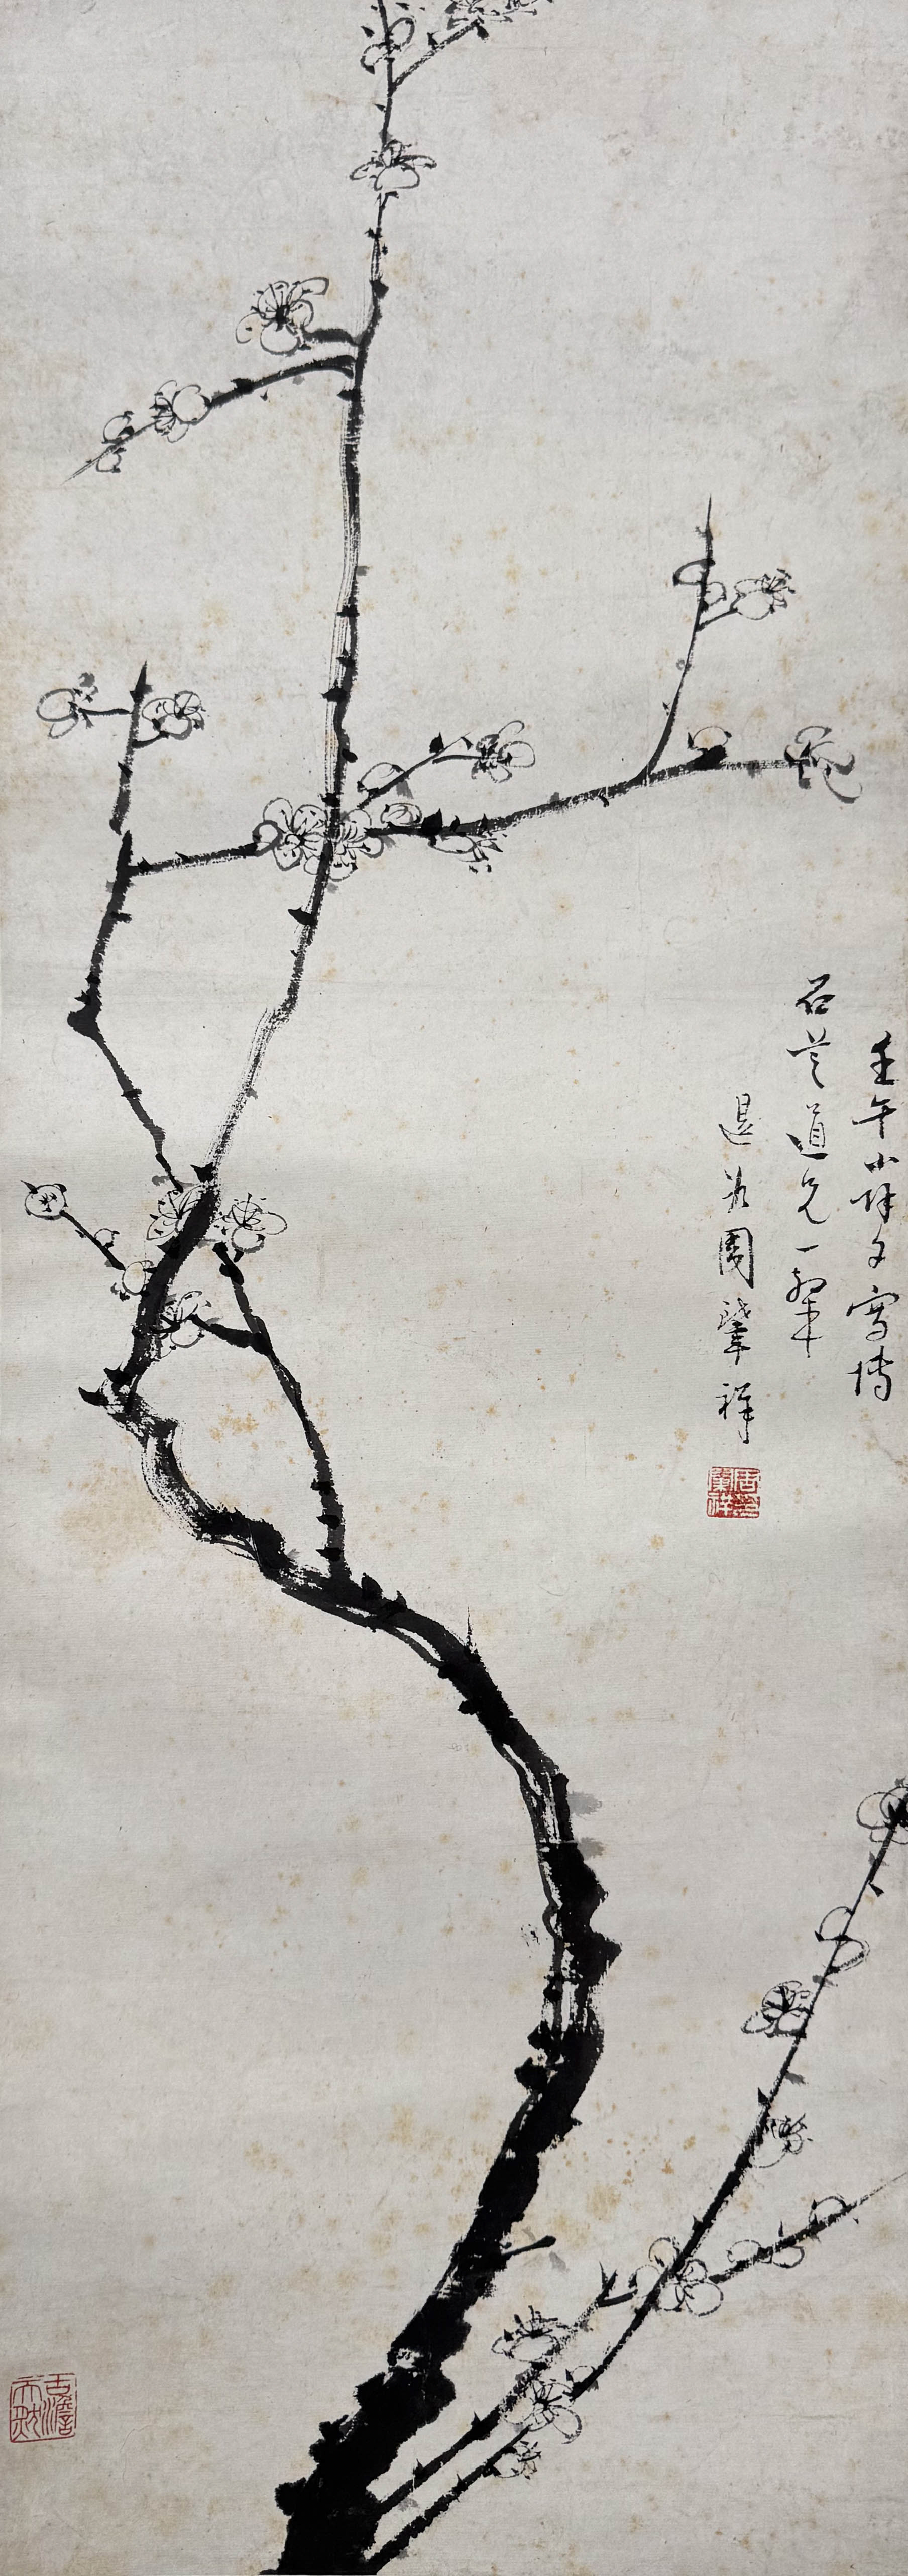 壬午小除夕写博
石芝道兄一粲
退若周肇祥
周肇祥印